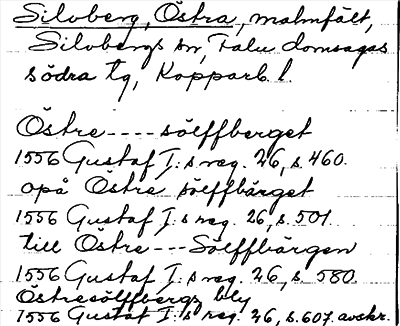 Silvberg, Östra, malmfält,
Silvbergs sn, Falu domsagas
södra tg, Kopparb. l.
Östre----sölffberget
1556 Gustaf I:s reg. 26, s. 460.
opå Östre sölffbärget
1556 Gustaf I:s reg. 26, s. 501.
till Östre---Sölffbärgen
1556 Gustaf I:s reg. 26, s. 580.
Östresölffbergz bly
1556 Gustaf I:s reg. 26, s. 607. avskr.